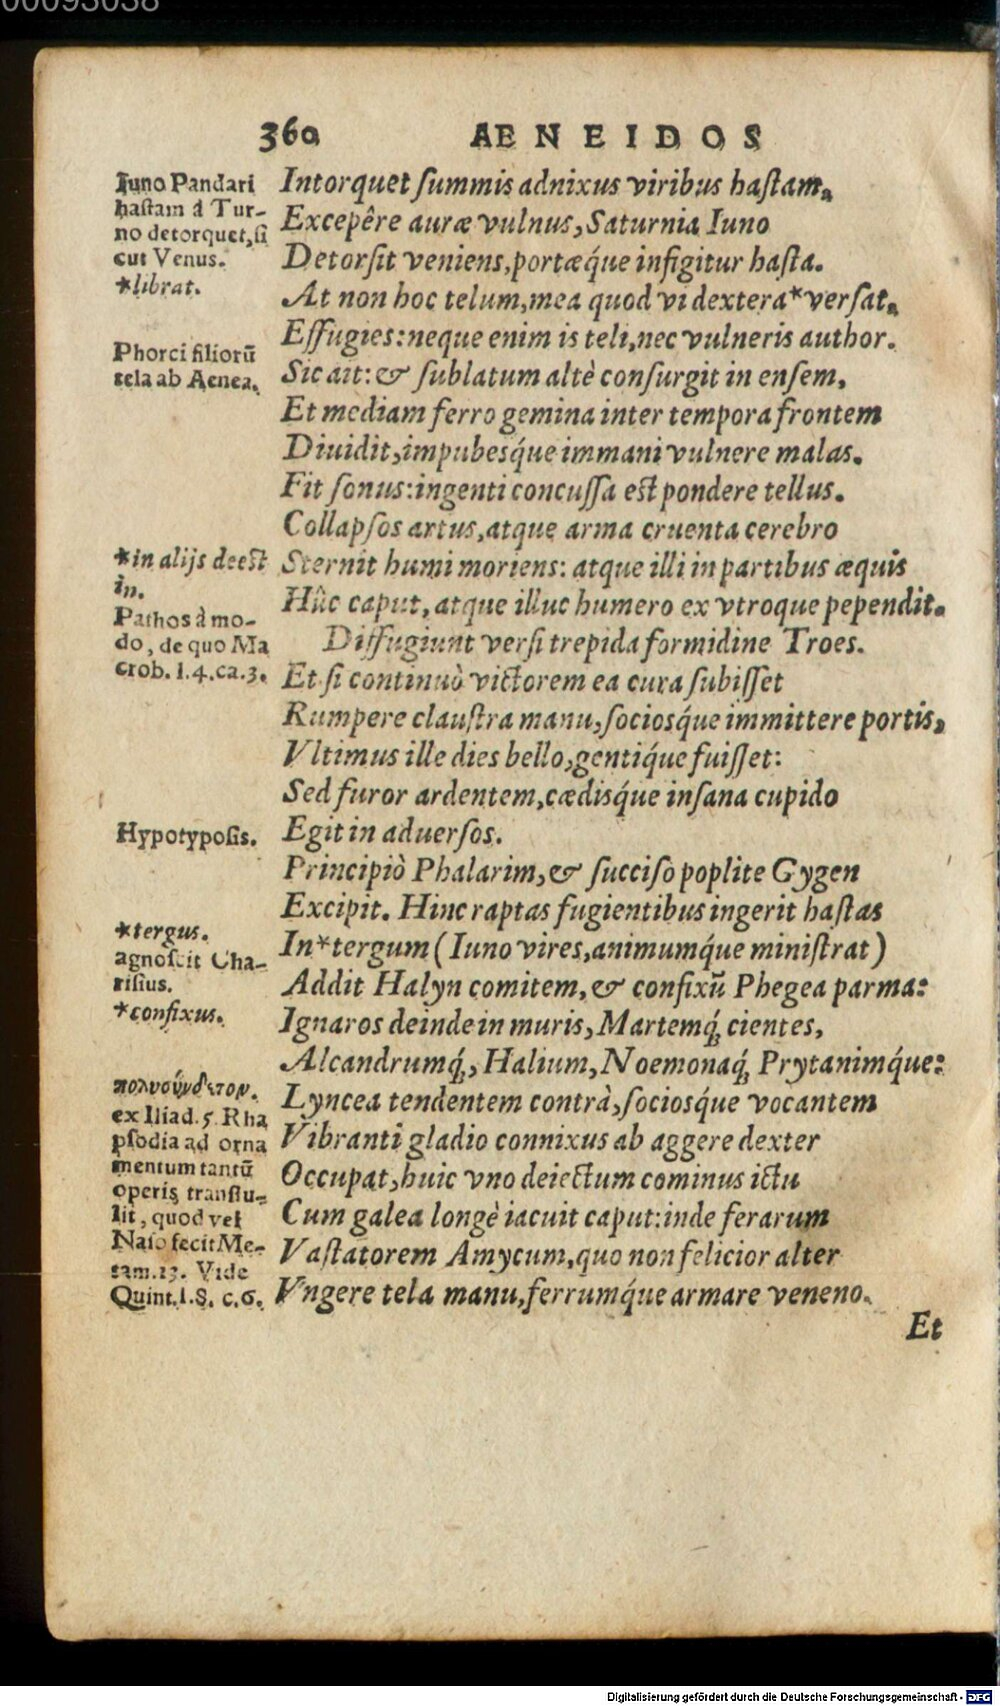 00093038
360 AENEIDOS
Iuno Pandari
hastam á Tur-
no detorquet, si
cut Venus.
*librat.
Phorci filiorũ
tela ab Aenea.
*in alijs deest
in.
Pathos à mo-
do, de quo Ma
crob. l.4.ca.3.
Hypotyposis.
*tergus.
agnoscit Cha-
risius.
*confixus.
πολυσύνδετον.
ex Iliad. 5. Rha
psodia ad orna
mentum tantũ
operis transtu-
lit, quod vel
Naso fecit Me-
tam.13. Vide
Quint.l.8. c.6.
Intorquet ſummis adnixus viribus haſtam.
Excepêre auræ vulnus, Saturnia Iuno
Detorſit veniens, portæq́ue infigitur haſta.
At non hoc telum, mea quod vi dextera*verſat,
Effugies: neque enim is teli, nec vulneris author.
Sic ait: & ſublatum altè conſurgit in enſem,
Et mediam ferro gemina inter tempora frontem
Diuidit, impubesq́ue immani vulnere malas.
Fit ſonus: ingenti concuſſa est pondere tellus.
Collapſos artus, atque arma cruenta cerebro
Sternit humi moriens: atque illi in partibus æquis
Hûc caput, atque illuc humero ex vtroque pependit.
Diffugiunt verſi trepida formidine Troes.
Et ſi continuò victorem ea cura ſubiſſet
Rumpere clauſtra manu, ſociosq́ue immittere portis,
Vltimus ille dies bello, gentiq́ue fuiſſet:
Sed furor ardentem, cædisq́ue inſana cupido
Egit in aduerſos.
Principiò Phalarim, & ſucciſo poplite Gygen
Excipit. Hinc raptas fugientibus ingerit haſtas
In*tergum (Iuno vires, animumq́ue miniſtrat)
Addit Halyn comitem, & confixũ Phegea parma:
Ignaros deinde in muris, Martemq́; cientes,
Alcandrumq́;, Halium, Noemonaq́; Prytanimq́ue:
Lyncea tendentem contrà, ſociosq́ue vocantem
Vibranti gladio connixus ab aggere dexter
Occupat, huic vno deiectum cominus ictu
Cum galea longè iacuit caput: inde ferarum
Vaſtatorem Amycum, quo non felicior alter
Vngere tela manu, ferrumq́ue armare veneno.
Et
Digitalisierung gefördert durch die Deutsche Forschungsgemeinschaft - DFG